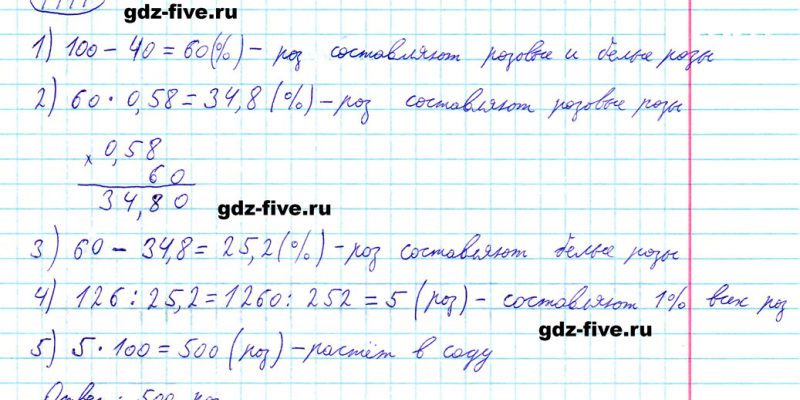 gdz-five.ru
1) 100 - 40 = 60 (%) - роз составляют розовые и белые розы
2) 60 · 0,58 = 34,8 (%) - роз составляют розовые розы
× 0,58
60
34,80
gdz-five.ru
3) 60 - 34,8 = 25,2 (%) - роз составляют белые розы
4) 126 : 25,2 = 1260 : 252 = 5 (роз) - составляют 1% всех роз
gdz-five.ru
5) 5 · 100 = 500 (роз) - растёт в саду
Ответ: 500 роз